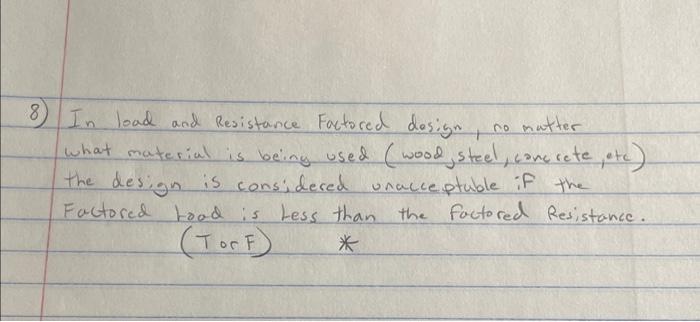 8) In load and Resistance Factored design, no matter
what material is being used (wood, steel, concrete, etc)
the design is considered unacceptable if the
Factored Load is Less than the factored Resistance.
(T or F) *